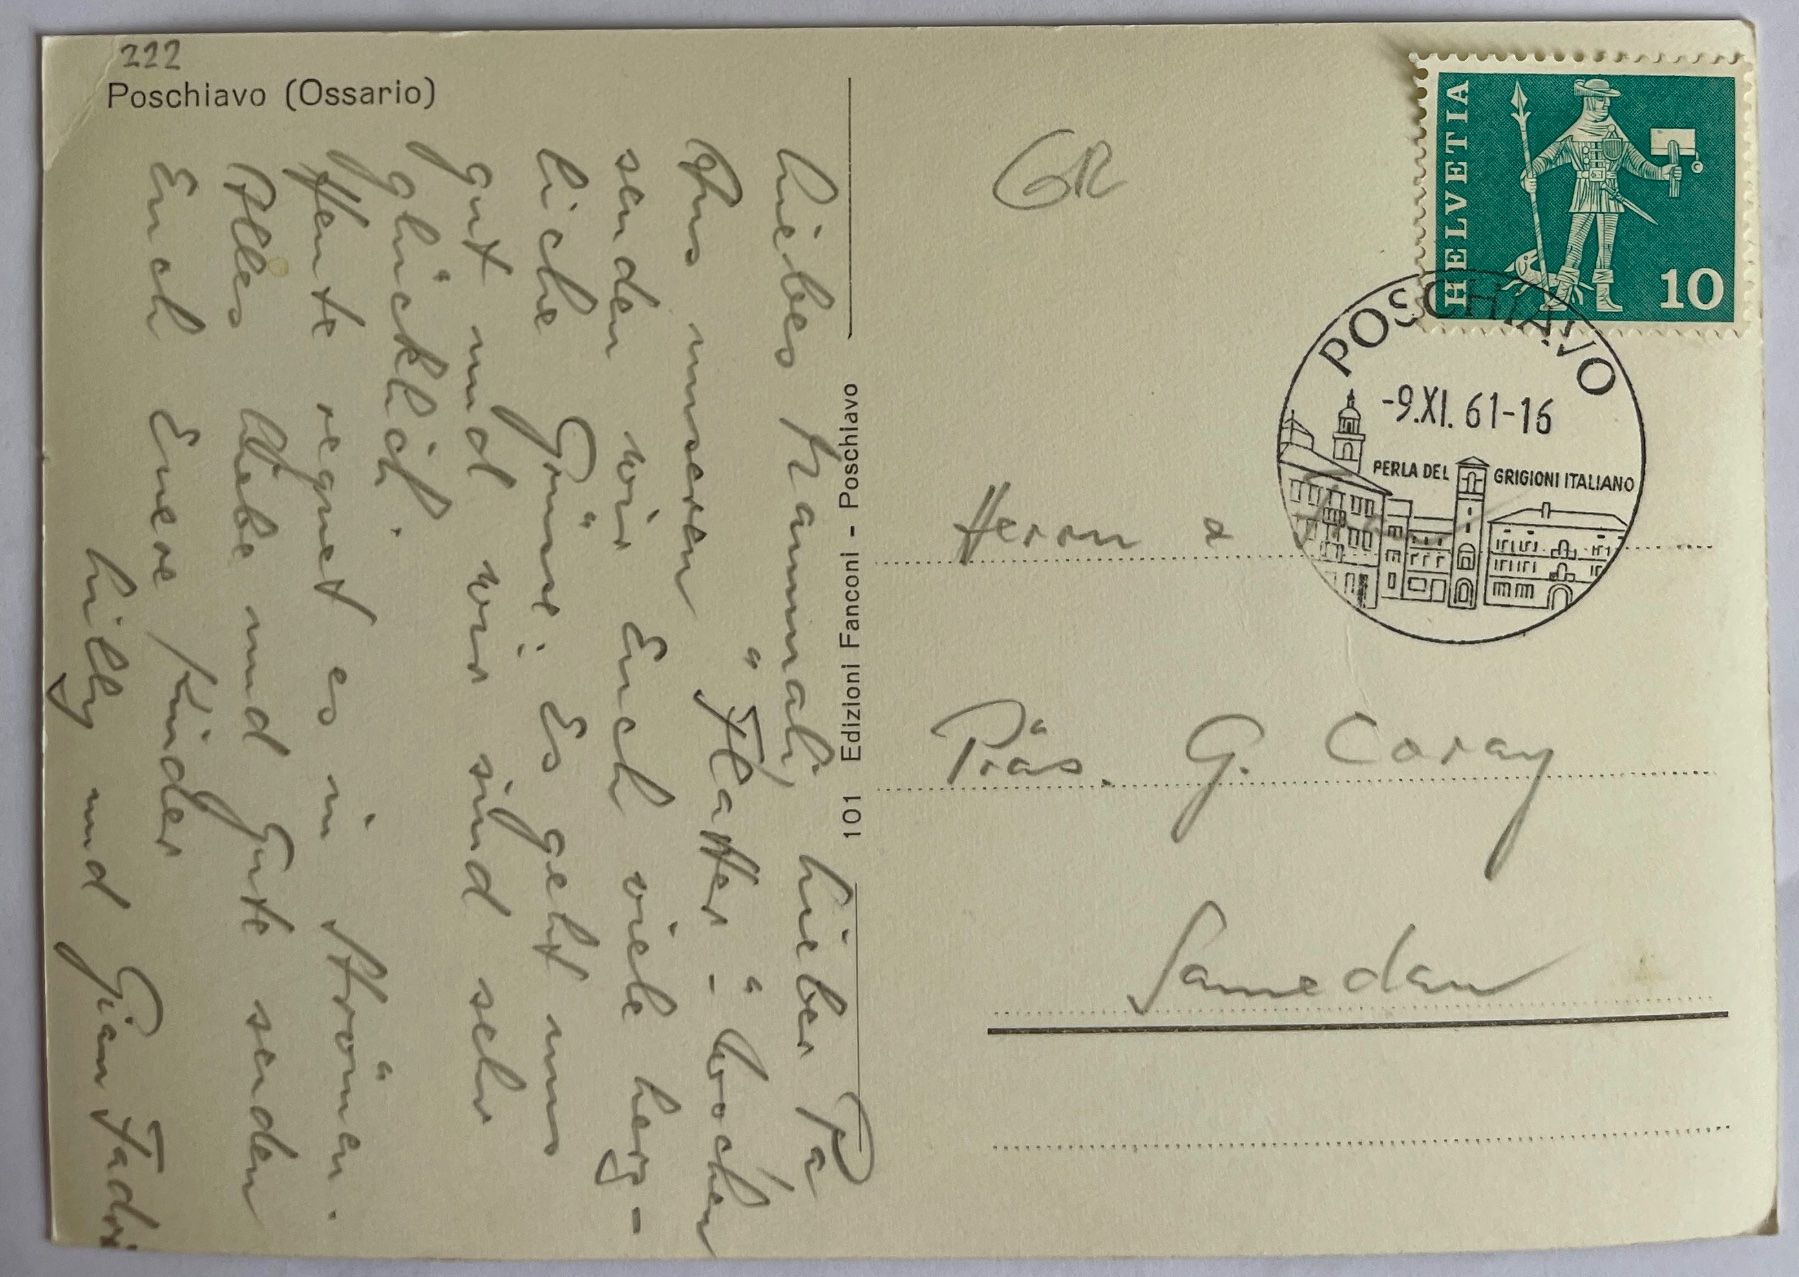 222
Poschiavo (Ossario)
Liebes Mammali, lieber Pa
Aus unseren "Flitter"-wochen
senden wir Euch viele herz-
liche Grüsse. Es geht uns
gut und wir sind sehr
glücklich.
Heute regnet es in Strömen.
Alles Liebe und Gute senden
Euch Euere Kinder
Lilly und Gian Fadri
101 Edizioni Fanconi - Poschiavo
GR
HELVETIA
10
POSCHIAVO
-9.XI.61-16
PERLA DEL GRIGIONI ITALIANO
Herrn &
Präs. G. Coray
Samedan